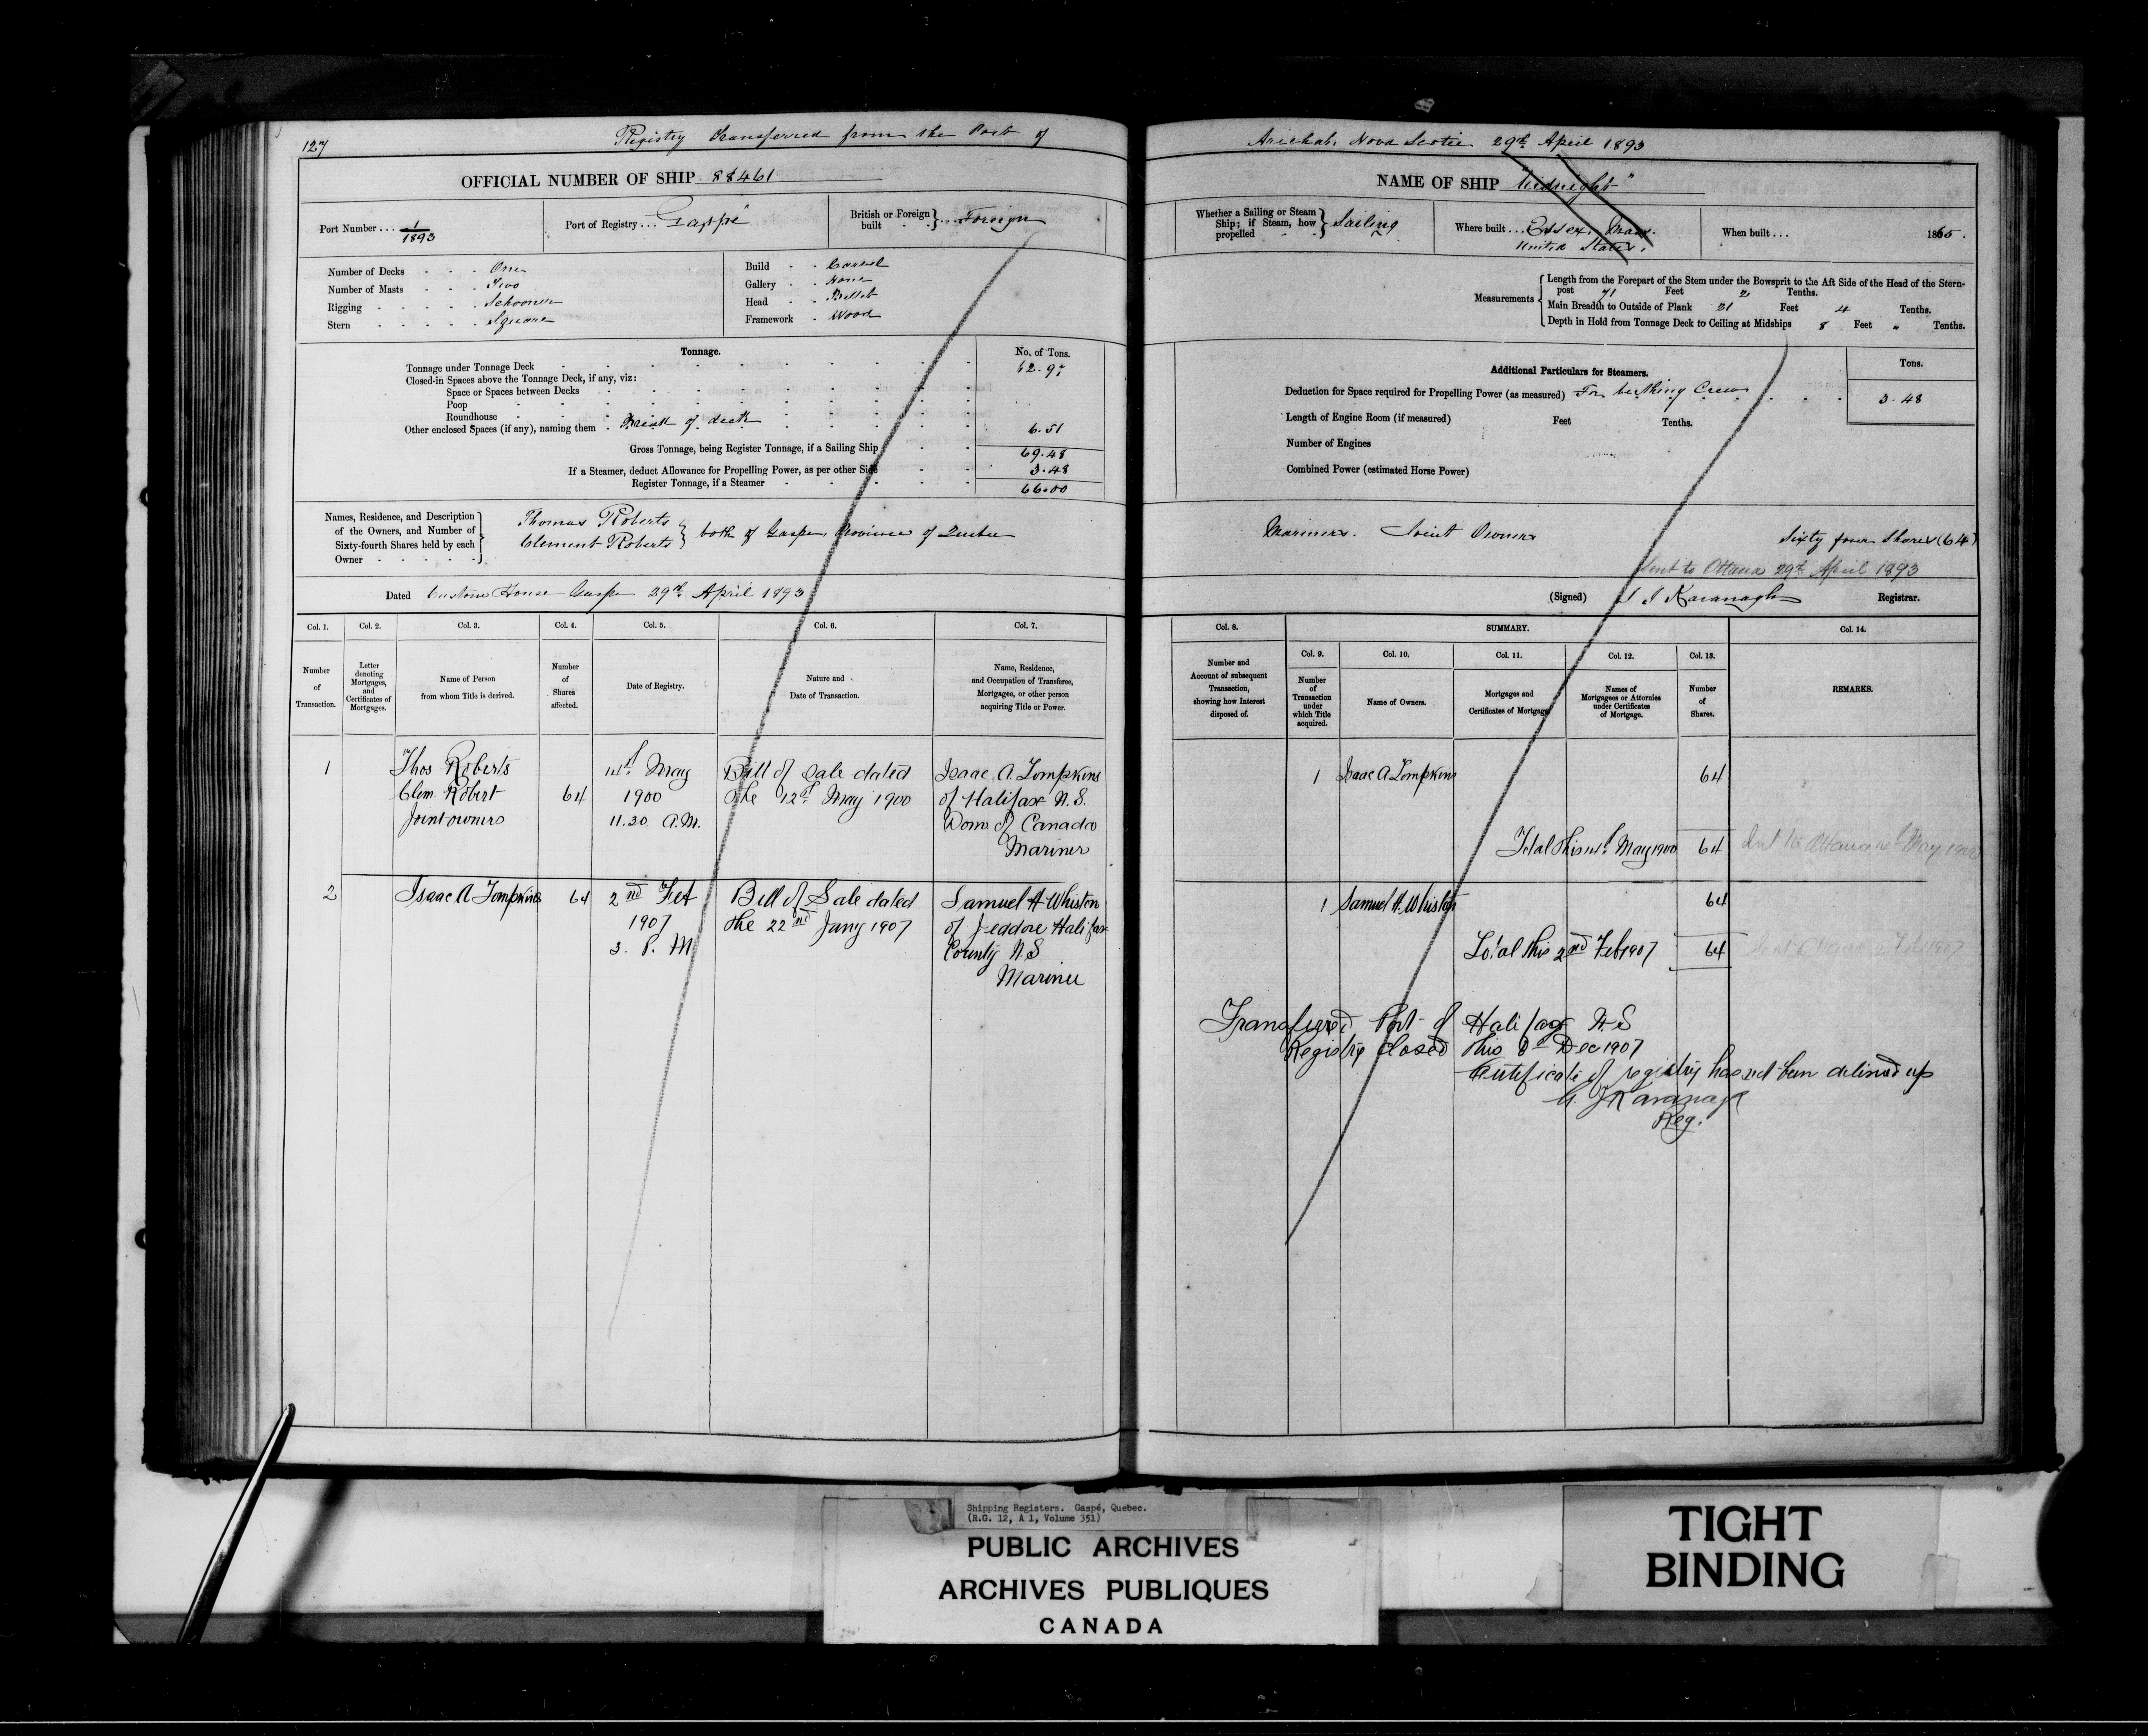 127
Registry transferred from the Port of
Arichat. Nova Scotia 29th April 1893
OFFICIAL NUMBER OF SHIP 88461
NAME OF SHIP "Midnight"
Port Number... 1/1893
Port of Registry... Gaspé
British or Foreign built } ... Foreign
Whether a Sailing or Steam Ship; if Steam, how propelled } Sailing
Where built... Essex. Mass. United States.
When built... 1865.
Number of Decks - - - One
Number of Masts - - - Two
Rigging - - - - - Schooner
Stern - - - - - Square
Build - - Carvel
Gallery - - None
Head - - Billet
Framework - Wood
Measurements { Length from the Forepart of the Stem under the Bowsprit to the Aft Side of the Head of the Stern-
post 71 Feet 2 Tenths.
Main Breadth to Outside of Plank 21 Feet 4 Tenths.
Depth in Hold from Tonnage Deck to Ceiling at Midships 8 Feet „ Tenths.
Tonnage.
No. of Tons.
Tonnage under Tonnage Deck 62.97
Closed-in Spaces above the Tonnage Deck, if any, viz:
Space or Spaces between Decks
Poop
Roundhouse
Other enclosed Spaces (if any), naming them - Break of deck 6.51
Gross Tonnage, being Register Tonnage, if a Sailing Ship 69.48
If a Steamer, deduct Allowance for Propelling Power, as per other Side 3.48
Register Tonnage, if a Steamer 66.00
Additional Particulars for Steamers.
Tons.
Deduction for Space required for Propelling Power (as measured) For berthing Crew 3.48
Length of Engine Room (if measured) Feet Tenths.
Number of Engines
Combined Power (estimated Horse Power)
Names, Residence, and Description
of the Owners, and Number of
Sixty-fourth Shares held by each
Owner - - - - -
Thomas Roberts
Clement Roberts } both of Gaspe, Province of Quebec
Mariners. Joint Owners
Sixty four Shares (64)
Sent to Ottawa 29th April 1893
Dated Custom House Gaspe 29th April 1893
(Signed) J J Kavanagh Registrar.
Col. 1. Col. 2. Col. 3. Col. 4. Col. 5. Col. 6. Col. 7.
Number of Transaction.
Letter denoting Mortgages, and Certificates of Mortgages.
Name of Person from whom Title is derived.
Number of Shares affected.
Date of Registry.
Nature and Date of Transaction.
Name, Residence, and Occupation of Transferee, Mortgagee, or other person acquiring Title or Power.
Col. 8. SUMMARY. Col. 14.
Col. 9. Col. 10. Col. 11. Col. 12. Col. 13.
Number and Account of subsequent Transaction, showing how Interest disposed of.
Number of Transaction under which Title acquired.
Name of Owners.
Mortgages and Certificates of Mortgage
Names of Mortgagees or Attornies under Certificates of Mortgage.
Number of Shares.
REMARKS.
1 Thos Roberts 14th May Bill of Sale dated Isaac A. Tompkins
Clem. Robert 64 1900 the 12th May 1900 of Halifax N.S.
Joint owners 11.30 A.M. Dom. of Canada
Mariner
1 Isaac A Tompkins 64
Total this 14th May 1900 64 Sent to Ottawa 14th May 1900
2 Isaac A Tompkins 64 2nd Feb Bill of Sale dated Samuel H Whiston
1907 the 22nd Jany 1907 of Jeddore Halifax
3. P. M County N.S
Mariner
1 Samuel H. Whiston 64
Total this 2nd Feb 1907 64 Sent Ottawa 2 Feb 1907
Transferred Port of Halifax N.S
Registry Closed this Dec 1907
Certificate of registry has not been delivered up
J Kavanagh
Reg.
Shipping Registers. Gaspé, Quebec.
(R.G. 12, A 1, Volume 351)
PUBLIC ARCHIVES
ARCHIVES PUBLIQUES
CANADA
TIGHT
BINDING